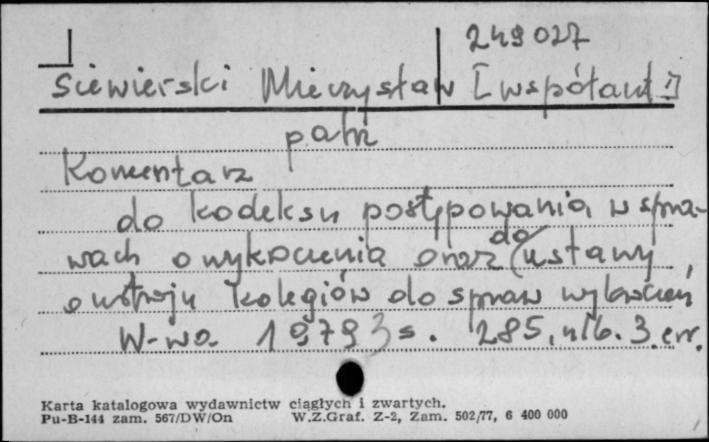 249027
Siewierski Mieczysław [współaut.]
patrz
Komentarz
do kodeksu postępowania w spra-
wach o wykroczenia oraz do ustawy
o ustroju kolegiów do spraw wykroczeń
W-wa 1979 s. 285, nlb. 3. err.
Karta katalogowa wydawnictw ciągłych i zwartych.
Pu-B-144 zam. 567/DW/On W.Z.Graf. Z-2, Zam. 502/77, 6 400 000